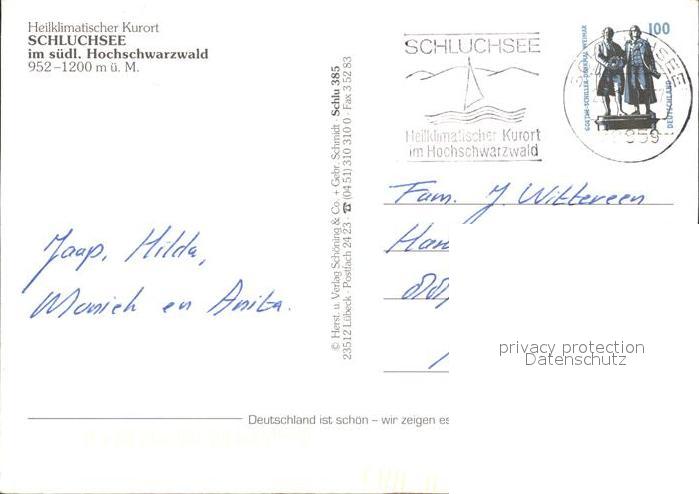 Heilklimatischer Kurort
SCHLUCHSEE
im südl. Hochschwarzwald
952–1200 m ü. M.
Jaap, Hilda,
Monich en Anita.
© Herst. u. Verlag Schöning & Co. + Gebr. Schmidt · Schlu 385
23512 Lübeck · Postfach 24 23 · ☎ (04 51) 310 310 0 · Fax 3 52 83
SCHLUCHSEE
Heilklimatischer Kurort
im Hochschwarzwald
GOETHE-SCHILLER-DENKMAL WEIMAR
100
DEUTSCHLAND
Fam. J. Wittereen
Han
privacy protection
Datenschutz
Deutschland ist schön – wir zeigen es